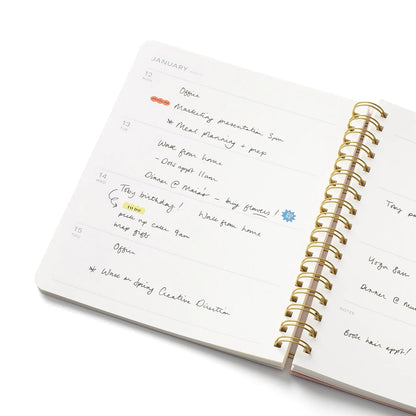 JANUARY
12
MON
Office
Marketing presentation 3pm
* Meal planning + prep
13
TUE
Work from home
- Docs appt 11am
Dinner @ Maias - buy flowers!
14
WED
Toby birthday! Work from home
TO DO
pick up cake 9am
wrap gifts
15
THU
Office
* Work on Spring Creative Direction
Toby
Yoga 8am
Dinner @
NOTES
Book hair appt!